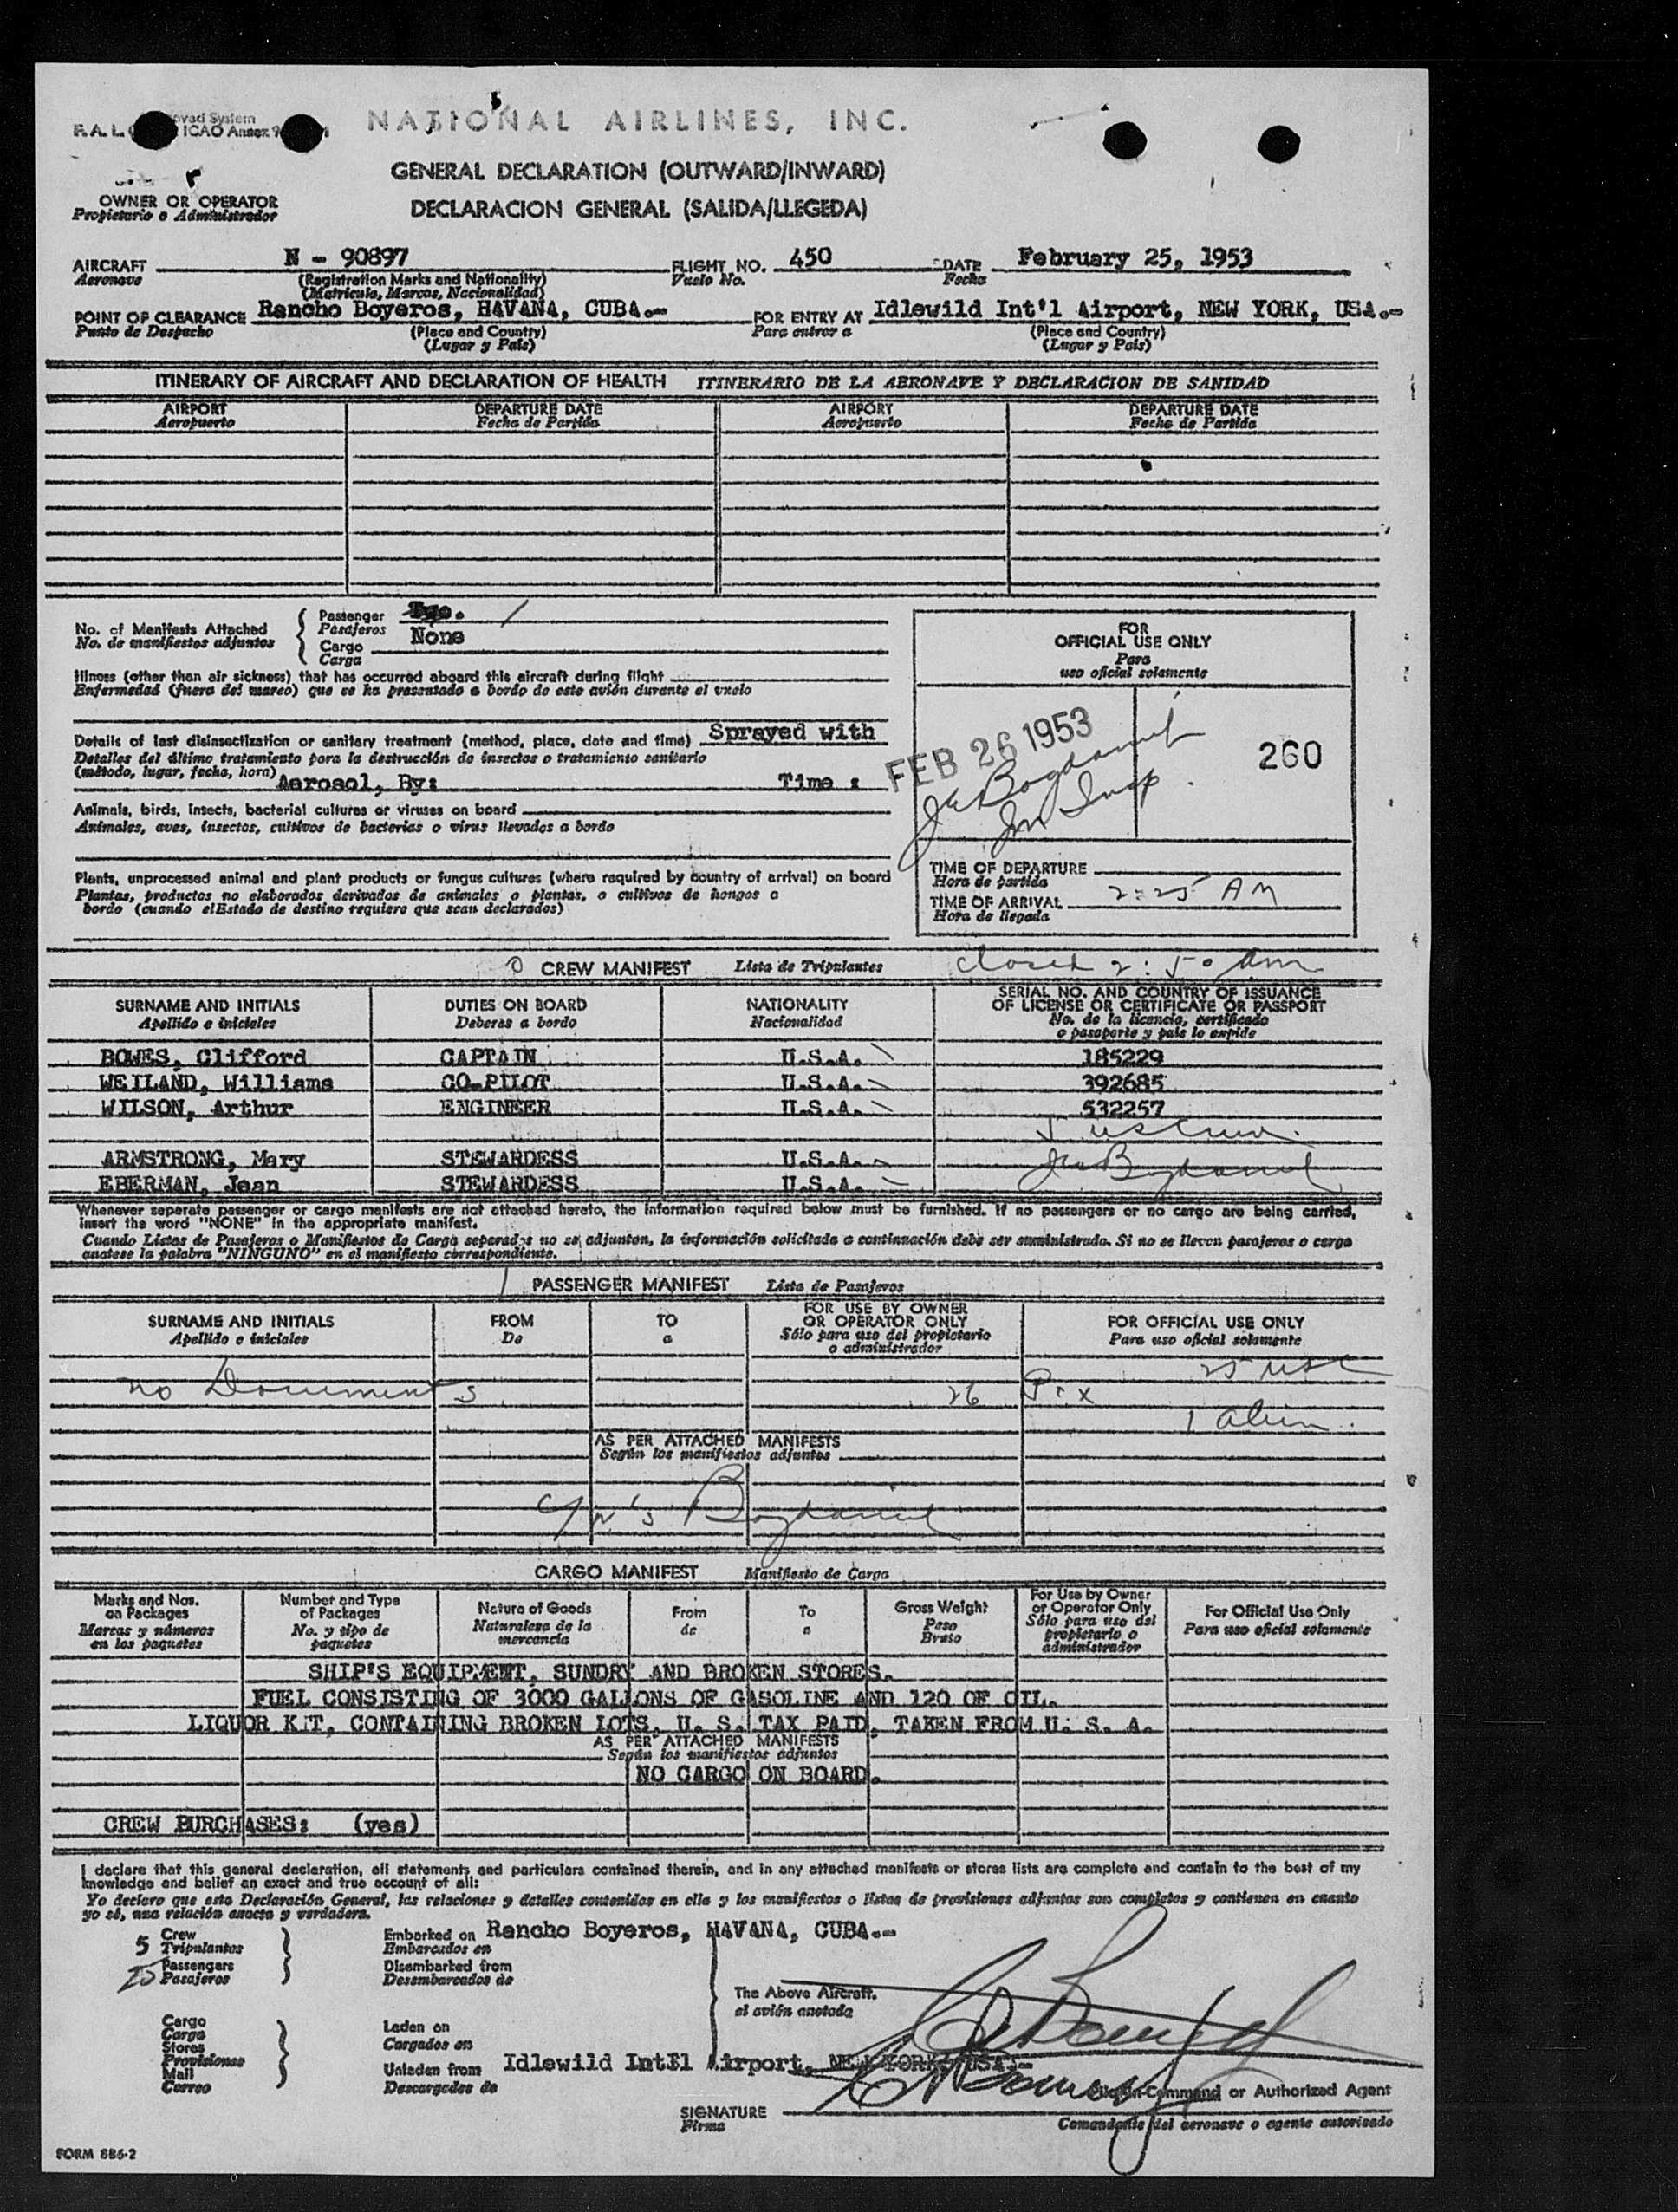 NATIONAL AIRLINES, INC.
ICAO Annex 9
GENERAL DECLARATION (OUTWARD/INWARD)
OWNER OR OPERATOR
Propietario o Administrador
DECLARACION GENERAL (SALIDA/LLEGEDA)
AIRCRAFT N - 90897 FLIGHT NO. 450 DATE February 25, 1953
Aeronave (Registration Marks and Nationality) Vuelo No. Fecha
(Matricula, Marcas, Nacionalidad)
POINT OF CLEARANCE Rancho Boyeros, HAVANA, CUBA.-- FOR ENTRY AT Idlewild Int'l Airport, NEW YORK, USA.--
Punto de Despacho (Place and Country) Para entrar a (Place and Country)
(Lugar y Pais) (Lugar y Pais)
ITINERARY OF AIRCRAFT AND DECLARATION OF HEALTH ITINERARIO DE LA AERONAVE Y DECLARACION DE SANIDAD
AIRPORT DEPARTURE DATE AIRPORT DEPARTURE DATE
Aeropuerto Fecha de Partida Aeropuerto Fecha de Partida
No. of Manifests Attached
No. de manifiestos adjuntos
Passenger /
Pasajeros
Cargo None
Carga
Illness (other than air sickness) that has occurred aboard this aircraft during flight
Enfermedad (fuera del mareo) que se ha presentado a bordo de este avión durante el vuelo
Details of last disinsectization or sanitary treatment (method, place, date and time) Sprayed with
Detalles del último tratamiento para la destrucción de insectos o tratamiento sanitario
(método, lugar, fecha, hora) Aerosol, By: Time :
Animals, birds, insects, bacterial cultures or viruses on board
Animales, aves, insectos, cultivos de bacterias o virus llevados a bordo
Plants, unprocessed animal and plant products or fungus cultures (where required by country of arrival) on board
Plantas, productos no elaborados derivados de animales o plantas, o cultivos de hongos a
bordo (cuando elEstado de destino requiera que sean declarados)
FOR
OFFICIAL USE ONLY
Para
uso oficial solamente
FEB 26 1953
260
TIME OF DEPARTURE
Hora de partida
TIME OF ARRIVAL 2:25 AM
Hora de llegada
CREW MANIFEST Lista de Tripulantes closed 2:50 am
SURNAME AND INITIALS DUTIES ON BOARD NATIONALITY SERIAL NO. AND COUNTRY OF ISSUANCE
OF LICENSE OR CERTIFICATE OR PASSPORT
Apellido e iniciales Deberes a bordo Nacionalidad No. de la licencia, certificado
o pasaporte y pais lo expide
BOWES, Clifford CAPTAIN U.S.A. 185229
WEILAND, Williams CO-PILOT U.S.A. 392685
WILSON, Arthur ENGINEER U.S.A. 532257
ARMSTRONG, Mary STEWARDESS U.S.A.
EBERMAN, Jean STEWARDESS U.S.A.
Whenever seperate passenger or cargo manifests are not attached hereto, the information required below must be furnished. If no passengers or no cargo are being carried,
insert the word "NONE" in the appropriate manifest.
Cuando Listas de Pasajeros o Manifiestos de Carga separados no se adjunten, la información solicitada a continuación debe ser suministrada. Si no se lleven pasajeros o carga
anotese la palabra "NINGUNO" en el manifiesto correspondiente.
PASSENGER MANIFEST Lista de Pasajeros
SURNAME AND INITIALS FROM TO FOR USE BY OWNER
OR OPERATOR ONLY FOR OFFICIAL USE ONLY
Apellido e iniciales De a Sólo para uso del propietario
o administrador Para uso oficial solamente
25 USC
no Documents 26
1 alien
AS PER ATTACHED MANIFESTS
Según los manifiestos adjuntos
CARGO MANIFEST Manifiesto de Carga
Marks and Nos.
on Packages
Marcas y números
en los paquetes
Number and Type
of Packages
No. y tipo de
paquetes
Nature of Goods
Naturalesa de la
mercancia
From
de
To
a
Gross Weight
Peso
Bruto
For Use by Owner
or Operator Only
Sólo para uso del
propietario o
administrador
For Official Use Only
Para uso oficial solamente
SHIP'S EQUIPMENT, SUNDRY AND BROKEN STORES.
FUEL CONSISTING OF 3000 GALLONS OF GASOLINE AND 120 OF OIL.
LIQUOR KIT, CONTAINING BROKEN LOTS, U. S. TAX PAID, TAKEN FROM U. S. A.
AS PER ATTACHED MANIFESTS
Según los manifiestos adjuntos
NO CARGO ON BOARD.
CREW PURCHASES: (yes)
I declare that this general declaration, all statements and particulars contained therein, and in any attached manifests or stores lists are complete and contain to the best of my
knowledge and belief an exact and true account of all:
Yo declaro que esta Declaración General, las relaciones y detalles contenidos en ella y los manifiestos o listas de provisiones adjuntas son completos y contienen en cuanto
yo sé, una relación exacta y verdadera.
5 Crew
Tripulantes
25 Passengers
Pasajeros
Embarked on Rancho Boyeros, HAVANA, CUBA.--
Embarcados en
Disembarked from
Desembarcados de
The Above Aircraft.
el avión anotada
Cargo
Carga
Stores
Provisiones
Mail
Correo
Laden on
Cargados en
Unladen from Idlewild Int'l Airport, NEW YORK, USA.--
Descargados de
Pilot-in-Command or Authorized Agent
SIGNATURE
Firma
Comandante del aeronave o agente autorisado
FORM 886-2